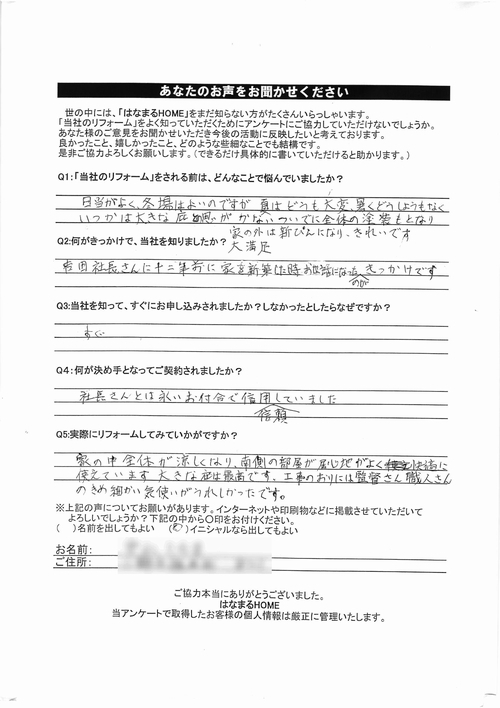 あなたのお声をお聞かせください
世の中には、「はなまるHOME」をまだ知らない方がたくさんいらっしゃいます。
「当社のリフォーム」をよく知っていただくためにアンケートにご協力していただけないでしょうか。
あなた様のご意見をお聞かせいただき今後の活動に反映したいと考えております。
良かったこと、嬉しかったこと、どのような些細なことでも結構です。
是非ご協力よろしくお願いします。(できるだけ具体的に書いていただけると助かります。)
Q1:「当社のリフォーム」をされる前は、どんなことで悩んでいましたか?
日当がよく、冬場はよいのですが 夏はどうも大変、暑くどうしようもなく
いつかは大きな庇の思いが かない ついでに全体の塗装もとなり
家の外は新ぴんになり、きれいです
大満足
Q2:何がきっかけで、当社を知りましたか?
社長さんに十二年前に家を新築した時お世話になったのが きっかけです
Q3:当社を知って、すぐにお申し込みされましたか?しなかったとしたらなぜですか?
すぐ
Q4:何が決め手となってご契約されましたか?
社長さんとは永いお付合で信用していました
信頼
Q5:実際にリフォームしてみていかがですか?
家の中全体が涼しくなり、南側の部屋が居心地がよく快適に
使えています 大きな庇は最高です、工事のおりには監督さん 職人さん
のきめ細かい気使いがうれしかったです。
※上記の声についてお願いがあります。インターネットや印刷物などに掲載させていただいて
よろしいでしょうか?下記の中から○印をお付けください。
( )名前を出してもよい (○)イニシャルなら出してもよい
お名前:
ご住所:
ご協力本当にありがとうございました。
はなまるHOME
当アンケートで取得したお客様の個人情報は厳正に管理いたします。